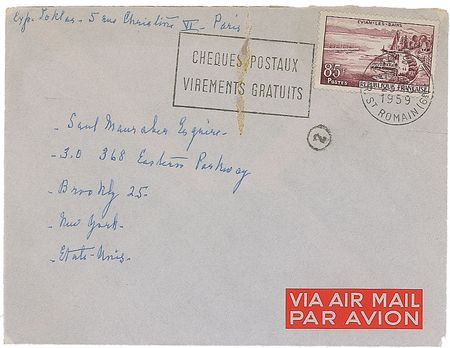 Exp. Soklas - 5 rue Christine VI - Paris
CHEQUES POSTAUX
VIREMENTS GRATUITS
ÉVIAN-LES-BAINS
85F
POSTES
RÉPUBLIQUE FRANÇAISE
1959
ST ROMAIN
2
Saul Esquire
3.0 368 Eastern Parkway
Brookly 25
New York
Etats-Unis
VIA AIR MAIL
PAR AVION